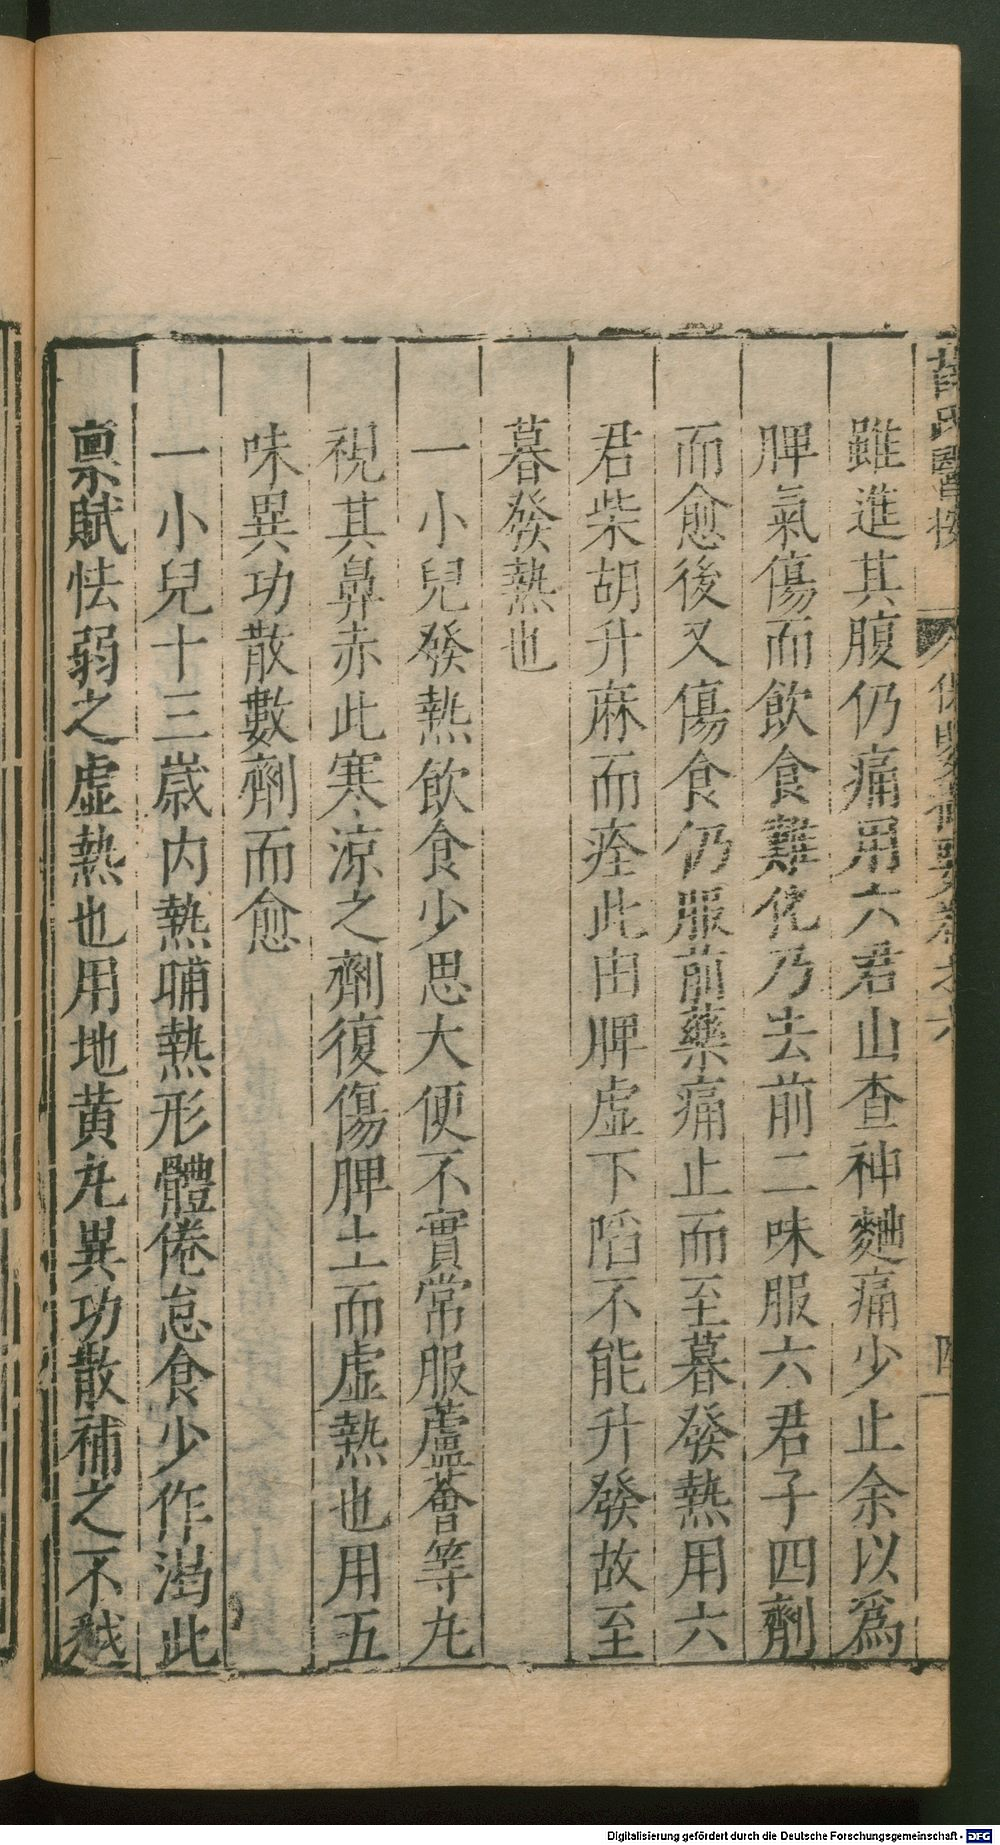 薛氏醫按 保嬰撮要卷六
雖進其腹仍痛用六君山查神麯痛少止余以爲
脾氣傷而飲食難化乃去前二味服六君子四劑
而愈後又傷食仍服前藥痛止而至暮發熱用六
君柴胡升麻而痊此由脾虛下䧟不能升發故至
暮發熱也
一小兒發熱飲食少思大便不實常服蘆薈等丸
視其鼻赤此寒凉之劑復傷脾土而虛熱也用五
味異功散數劑而愈
一小兒十三歲内熱晡熱形體倦怠食少作渴此
禀賦怯弱之虛熱也用地黄丸異功散補之不越
Digitalisierung gefördert durch die Deutsche Forschungsgemeinschaft - DFG